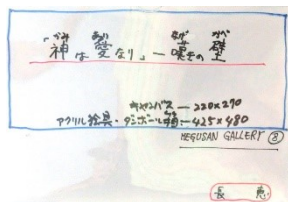 「神は愛なり」― 嘆きの壁
かみ あい なげ かべ
キャンバス ― 220×270
アクリル絵具・ダンボール箱 ― 425×480
MEGUSAN GALLERY ⑧
長 恵